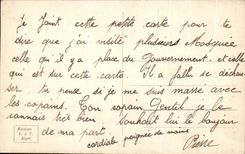 Je Joint cette petite carte pour te
dire que j'ai visité plusieurs Mosquée
celle qu'il y a place du Gouvernement, et celle
qui est sur cette carte. Il a fallu se dechau-
ser, tu pense si je me suis marré avec
les copains. Ton copain Gentil je le
connais très bien Souhaite lui le bonjour
de ma part.
cordiale poignée de mains
Pierre
Editions
Alger